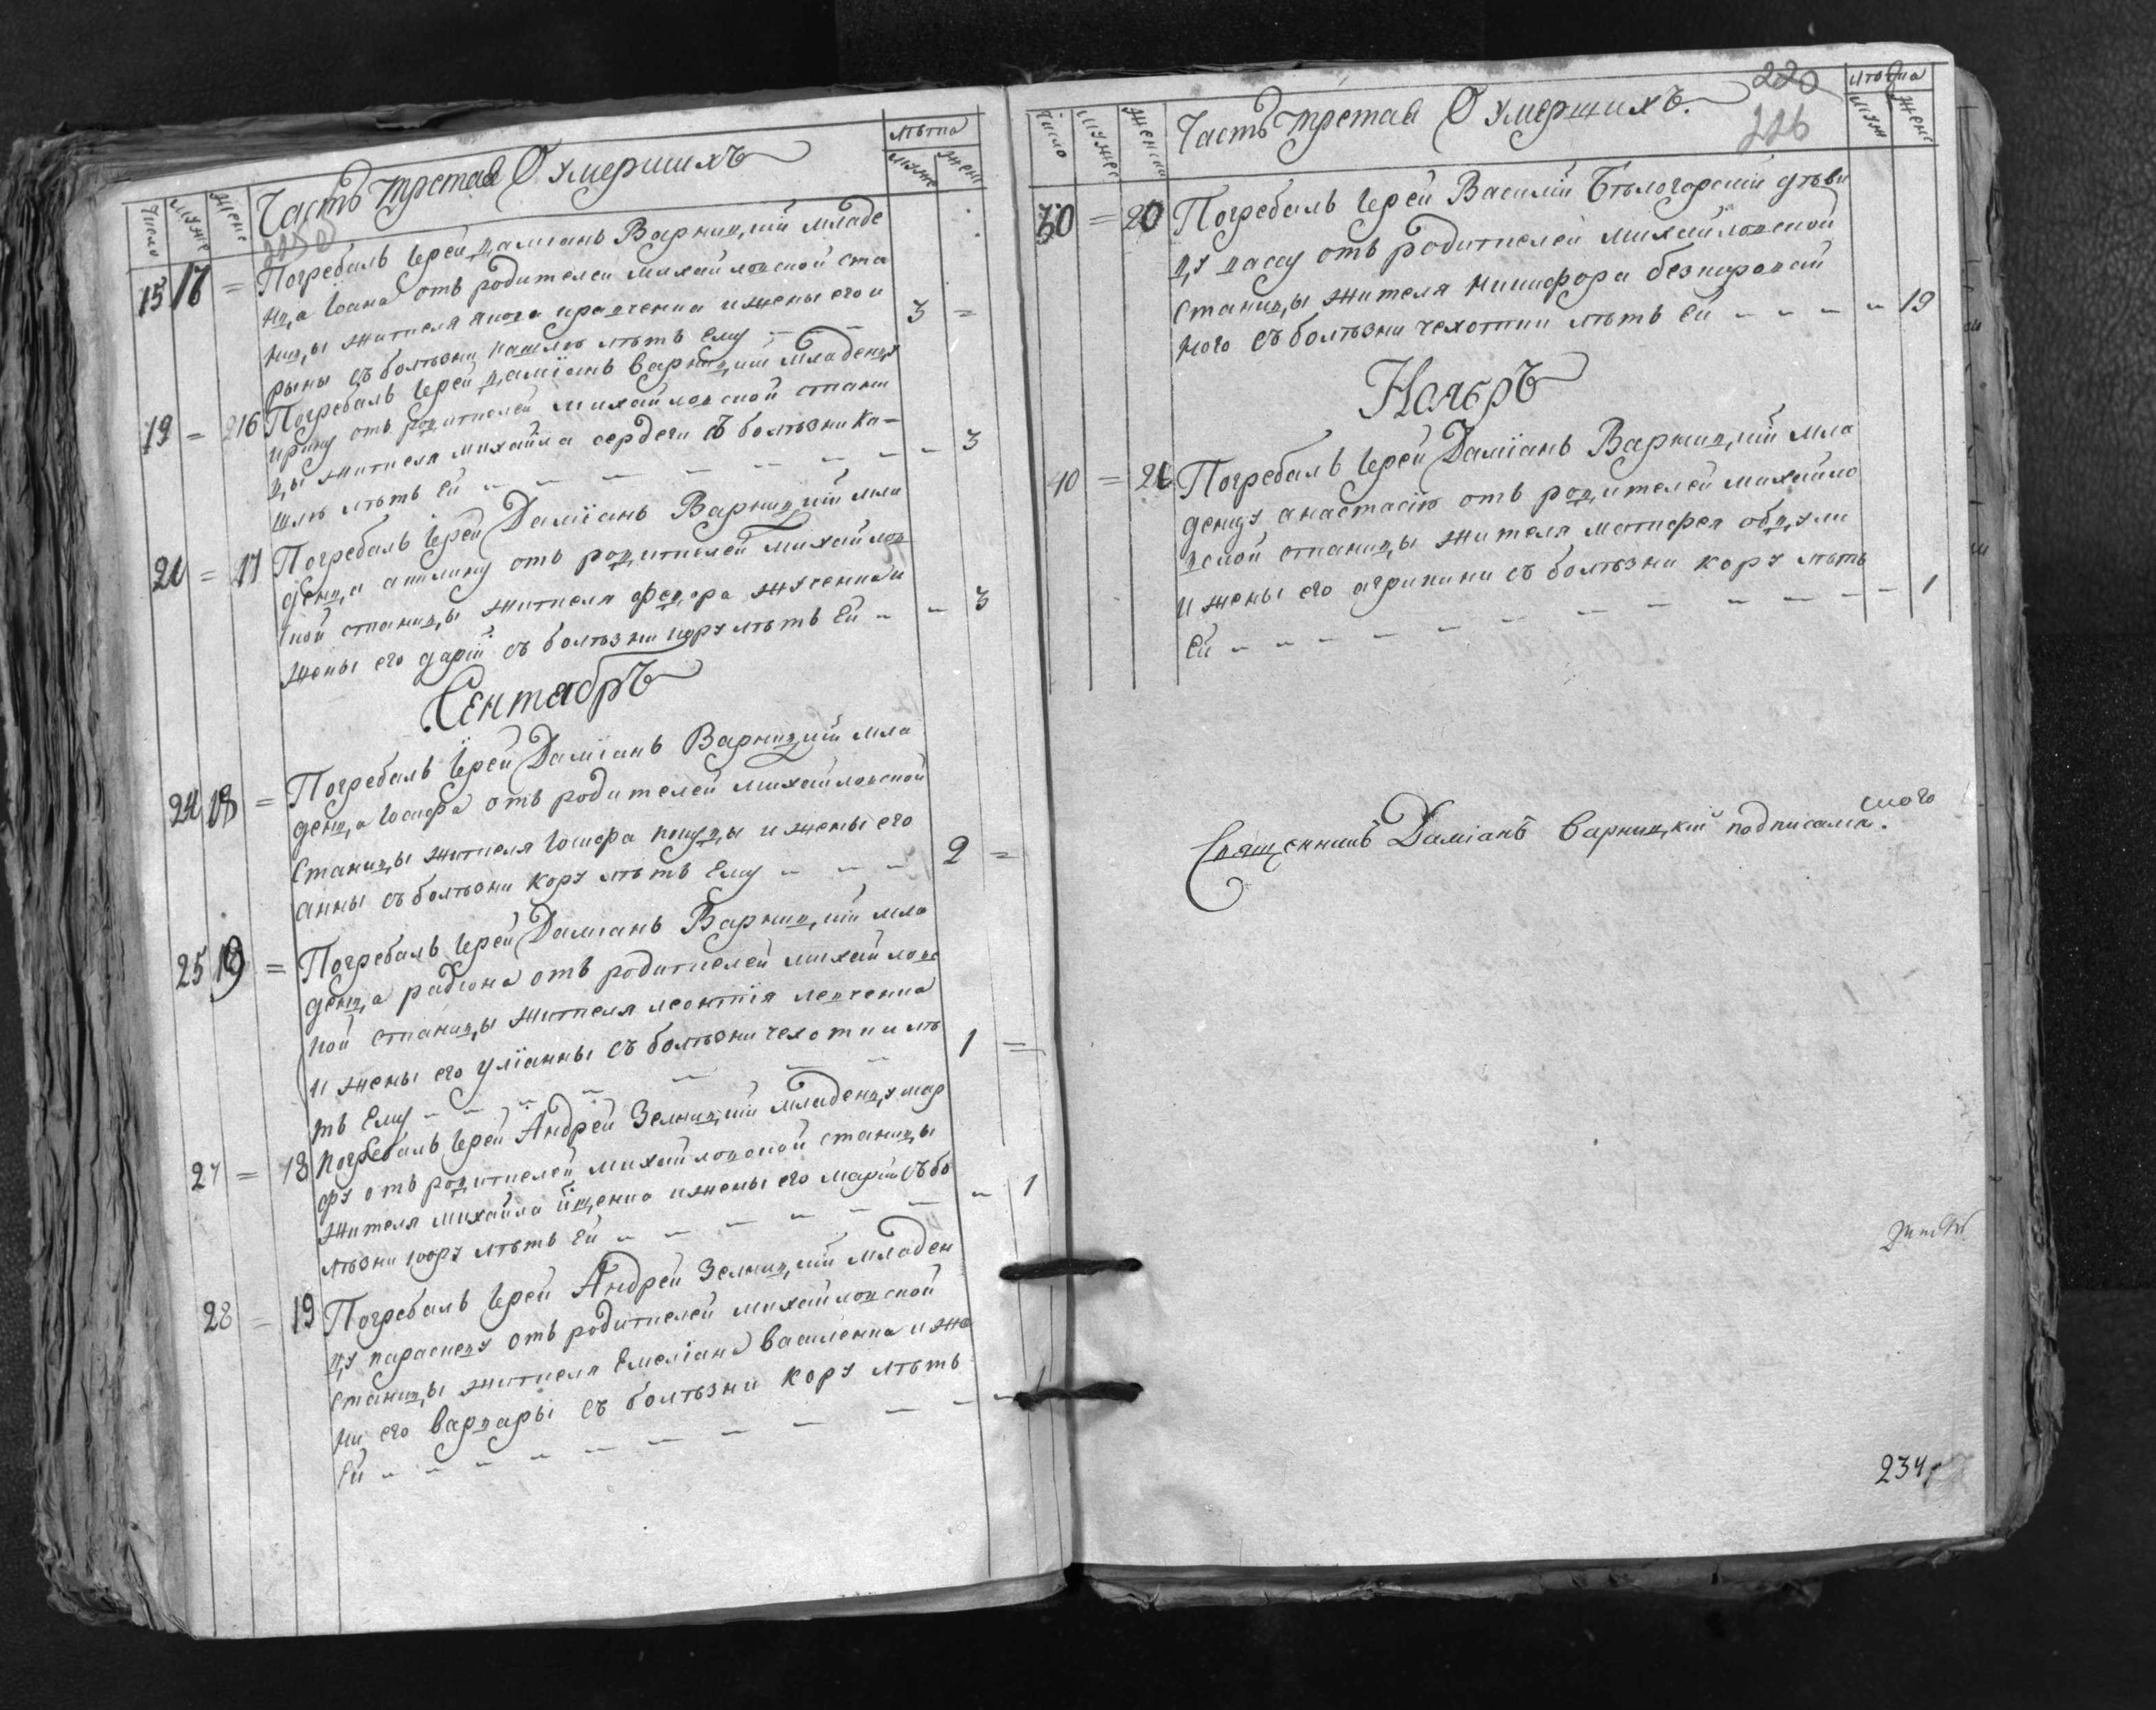 Число Муже Жене Часть третая О умершихъ лѣта муже жене
15 17 = Погребалъ Іерей даміанъ Варницкій младе
нца Іоана отъ родителей михайловской ста
ницы жителя якова кравченка и жены его и
рыны съ болѣзни кашлю лѣтъ Ему 3 =
19 = 16 Погребалъ Іерей даміанъ варницкій младенцу
ирину отъ родителей михайловской стани
цы жителя михайла сердеги съ болѣзни ка-
шлю лѣтъ Ей 3
21 = 17 Погребалъ Іерей Даміанъ Варницкій мла
денца акилину отъ родителей михайлов
ской станицы жителя федора и
жены его дарій съ болѣзни кору лѣтъ Ей 3
Сентябръ
24 18 = Погребалъ Іерей Даміанъ Варницкій мла
денца Іосифа отъ родителей михайловской
Станицы жителя Іосифа и жены его
анны съ болѣзни кору лѣтъ Ему 2 =
25 19 = Погребалъ Іерей Даміанъ Варницкій мла
денца радіона отъ родителей михайловс
кой станицы жителя леонтія левченка
и жены его уліанны съ болѣзни чехотки лѣ
тъ Ему 1 =
27 = 18 Погребалъ Іерей Андрей Зелницкій младенцу мар
фу отъ родителей михайловской станицы
жителя михайла іщенка и жены его маріи съ бо
лѣзни кору лѣтъ Ей 1
28 = 19 Погребалъ Іерей Андрей Зелницкій младен
цу параскеву отъ родителей михайловской
станицы жителя Емеліана василенка и же
ни его варвары съ болѣзни кору лѣтъ
Ей 1
Число Муже Женск Часть третая О умершихъ. 220 лѣта муж жене
226
30 = 20 Погребалъ Іерей Василій Бѣлогорскій дѣви
цу васу отъ родителей михайловской
станицы жителя никифора безкоровай
ного съ болѣзни чехотки лѣтъ Ей 19
Ноябръ
10 = 21 Погребалъ Іерей Даміанъ Варницкій мла
денцу анастасію отъ родителей михайло
вской станицы жителя матфея
и жены его агрипини съ болѣзни кору лѣтъ
Ей 1
Священникъ Даміанъ Варницкій подписался.
234